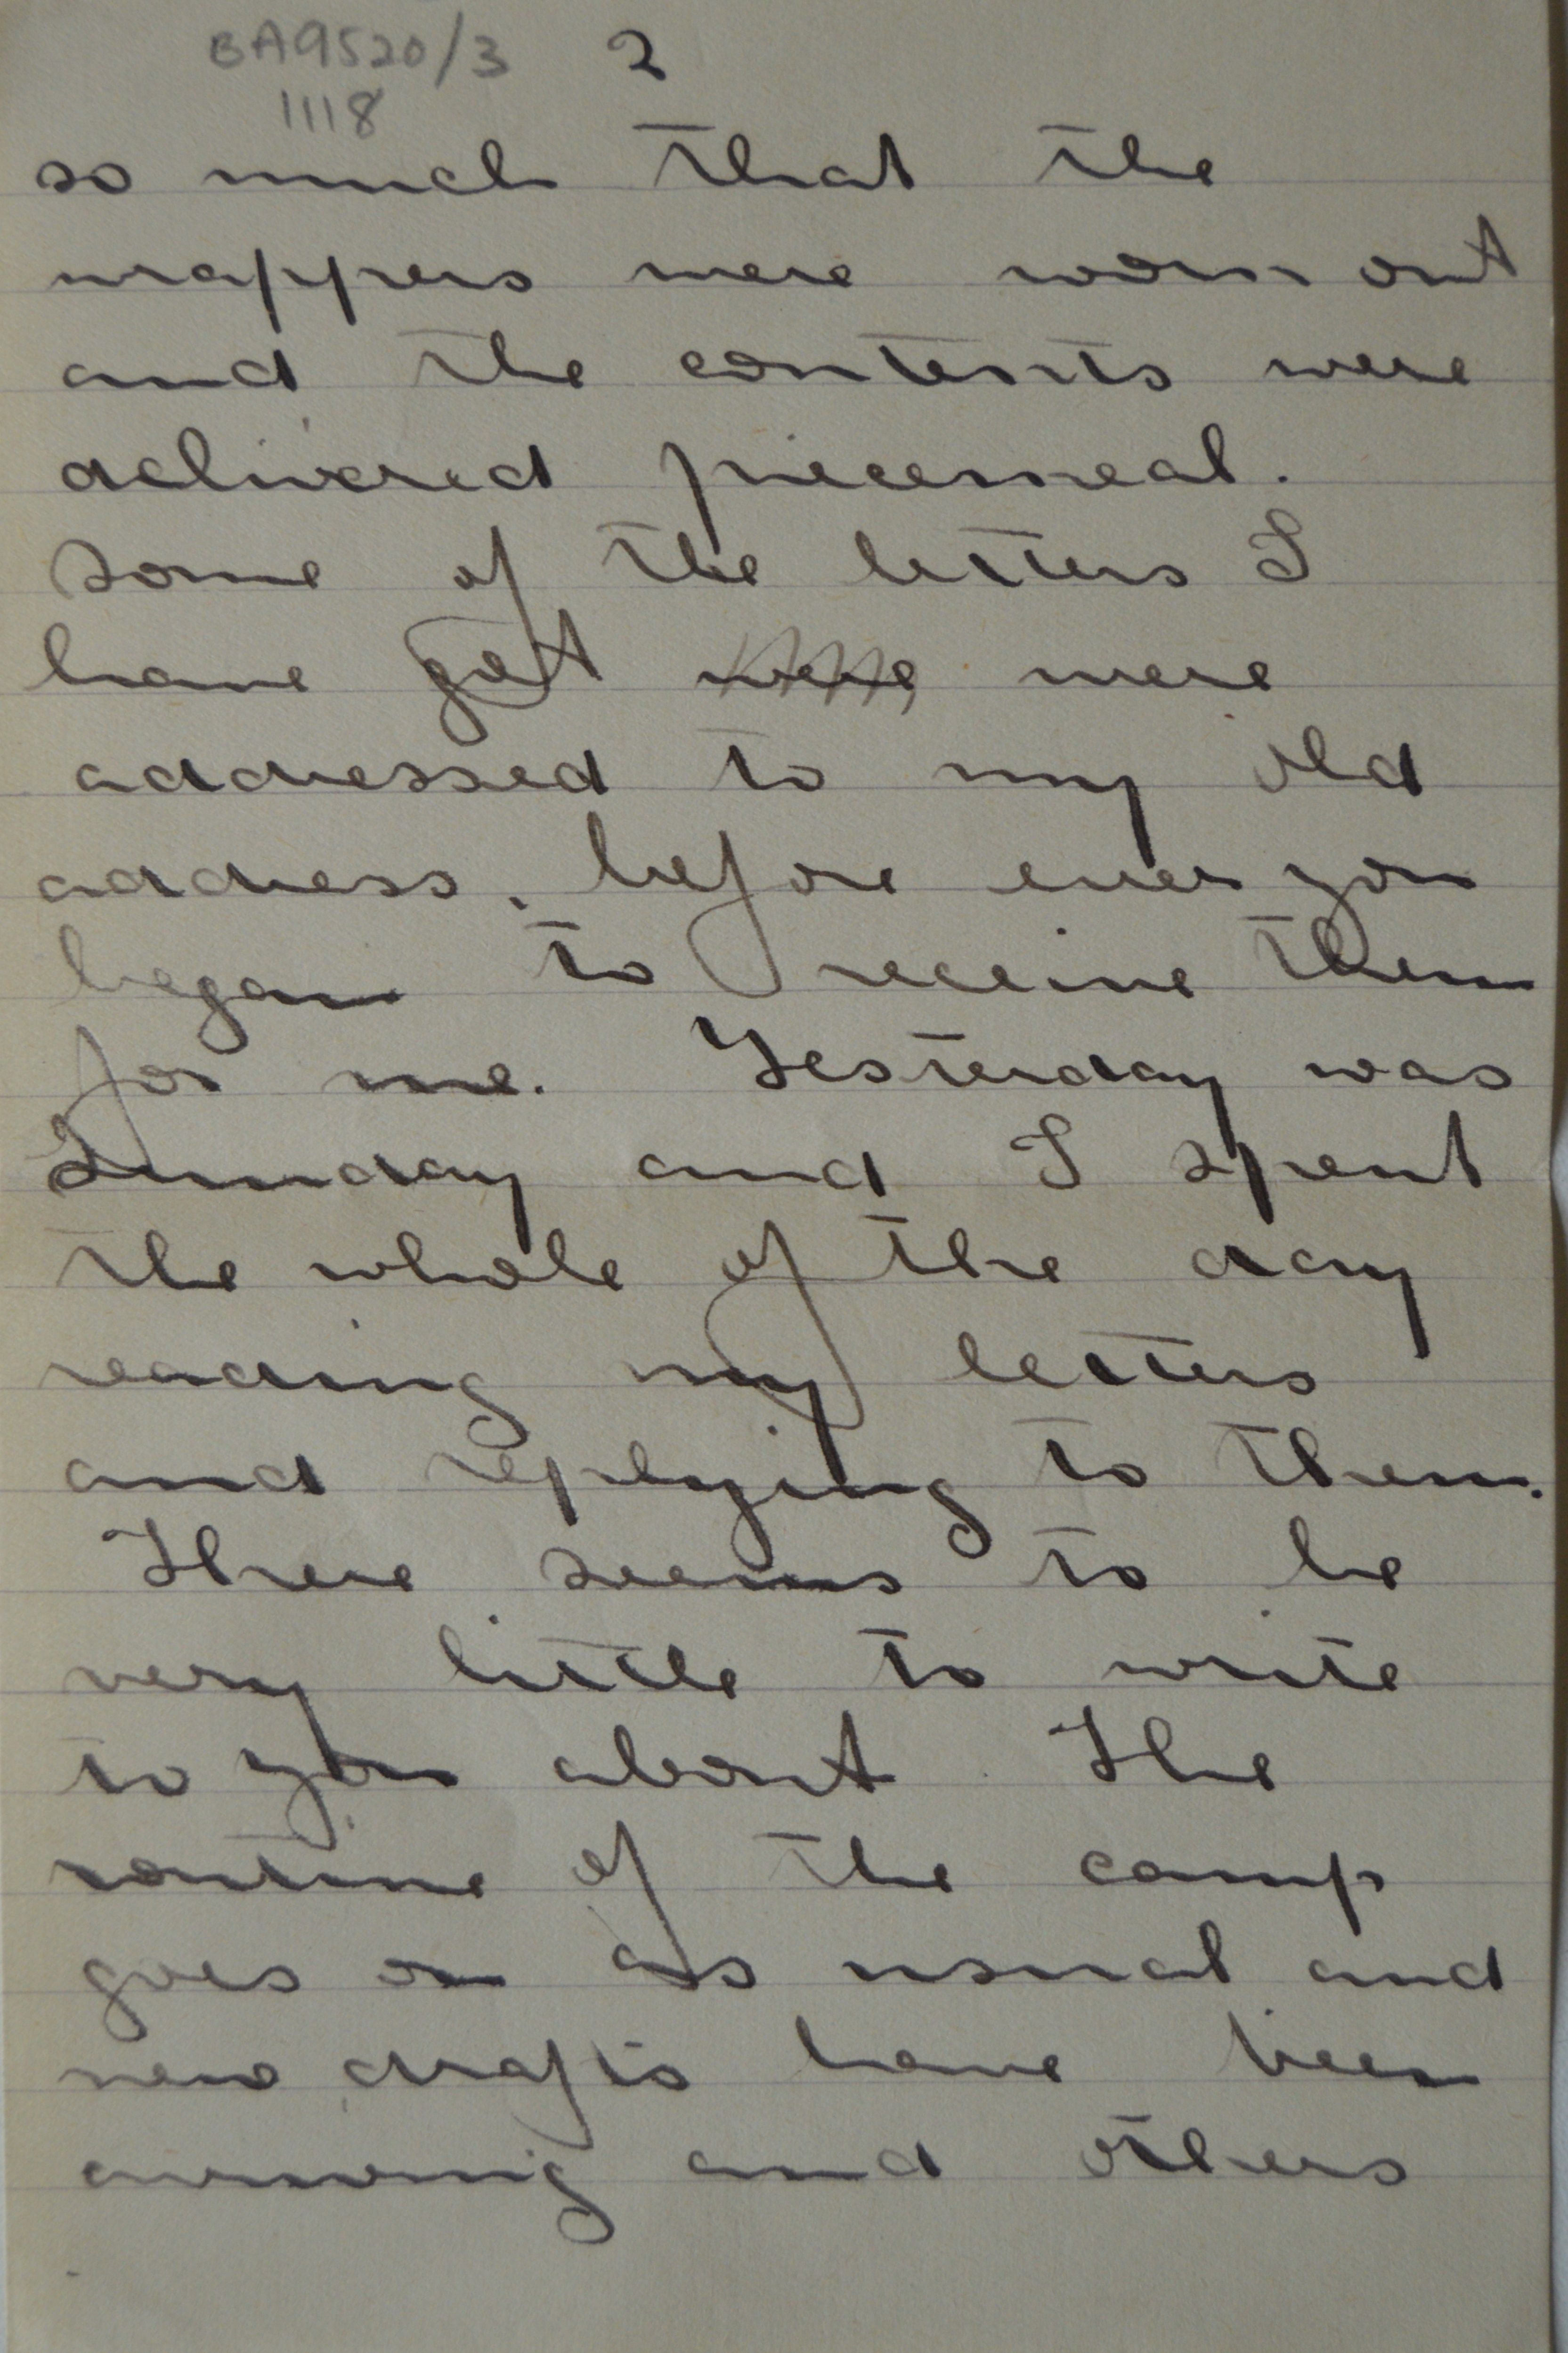 BA9520/3 2
1118
so much that the
wrappers were worn out
and the contents were
delivered piecemeal.
Some of the letters I
have got were were
addressed to my old
address. before ever you
began to receive them
for me. Yesterday was
Sunday and I spent
the whole of the day
reading my letters
and replying to them.
There seems to be
very little to write
to you about. The
routine of the camp
goes on as usual and
new drafts have been
arriving and others